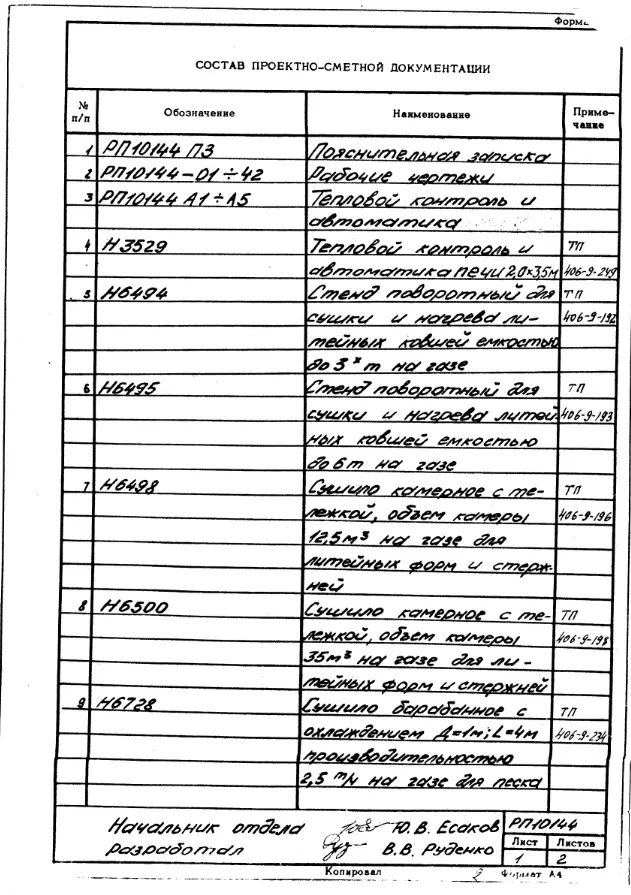 СОСТАВ ПРОЕКТНО-СМЕТНОЙ ДОКУМЕНТАЦИИ
№ п/п Обозначение Наименование Приме-
чание
1 РП10144 ПЗ Пояснительная записка
2 РП10144-01÷42 Рабочие чертежи
3 РП10144 А1÷А5 Тепловой контроль и
автоматика
4 Н3529 Тепловой контроль и ТП
автоматика печи 2,0х3,5м 406-9-249
5 Н6494 Стенд поворотный для ТП
сушки и нагрева ли- 406-9-192
тейных ковшей емкостью
до 3х т на газе
6 Н6495 Стенд поворотный для ТП
сушки и нагрева литей- 406-9-193
ных ковшей емкостью
до 6т на газе
7 Н6498 Сушило камерное с те- ТП
лежкой, объем камеры 406-9-196
12,5м³ на газе для
литейных форм и стерж-
ней
8 Н6500 Сушило камерное с те- ТП
лежкой, объем камеры 406-9-198
35м³ на газе для ли-
тейных форм и стержней
9 Н6728 Сушило барабанное с ТП
охлаждением Д=1м; L=4м 406-9-234
производительностью
2,5 т/ч на газе для песка
Начальник отдела Ю.В. Есаков РП10144
разработал В.В. Руденко Лист Листов
1 2
Копировал 2 Формат А4